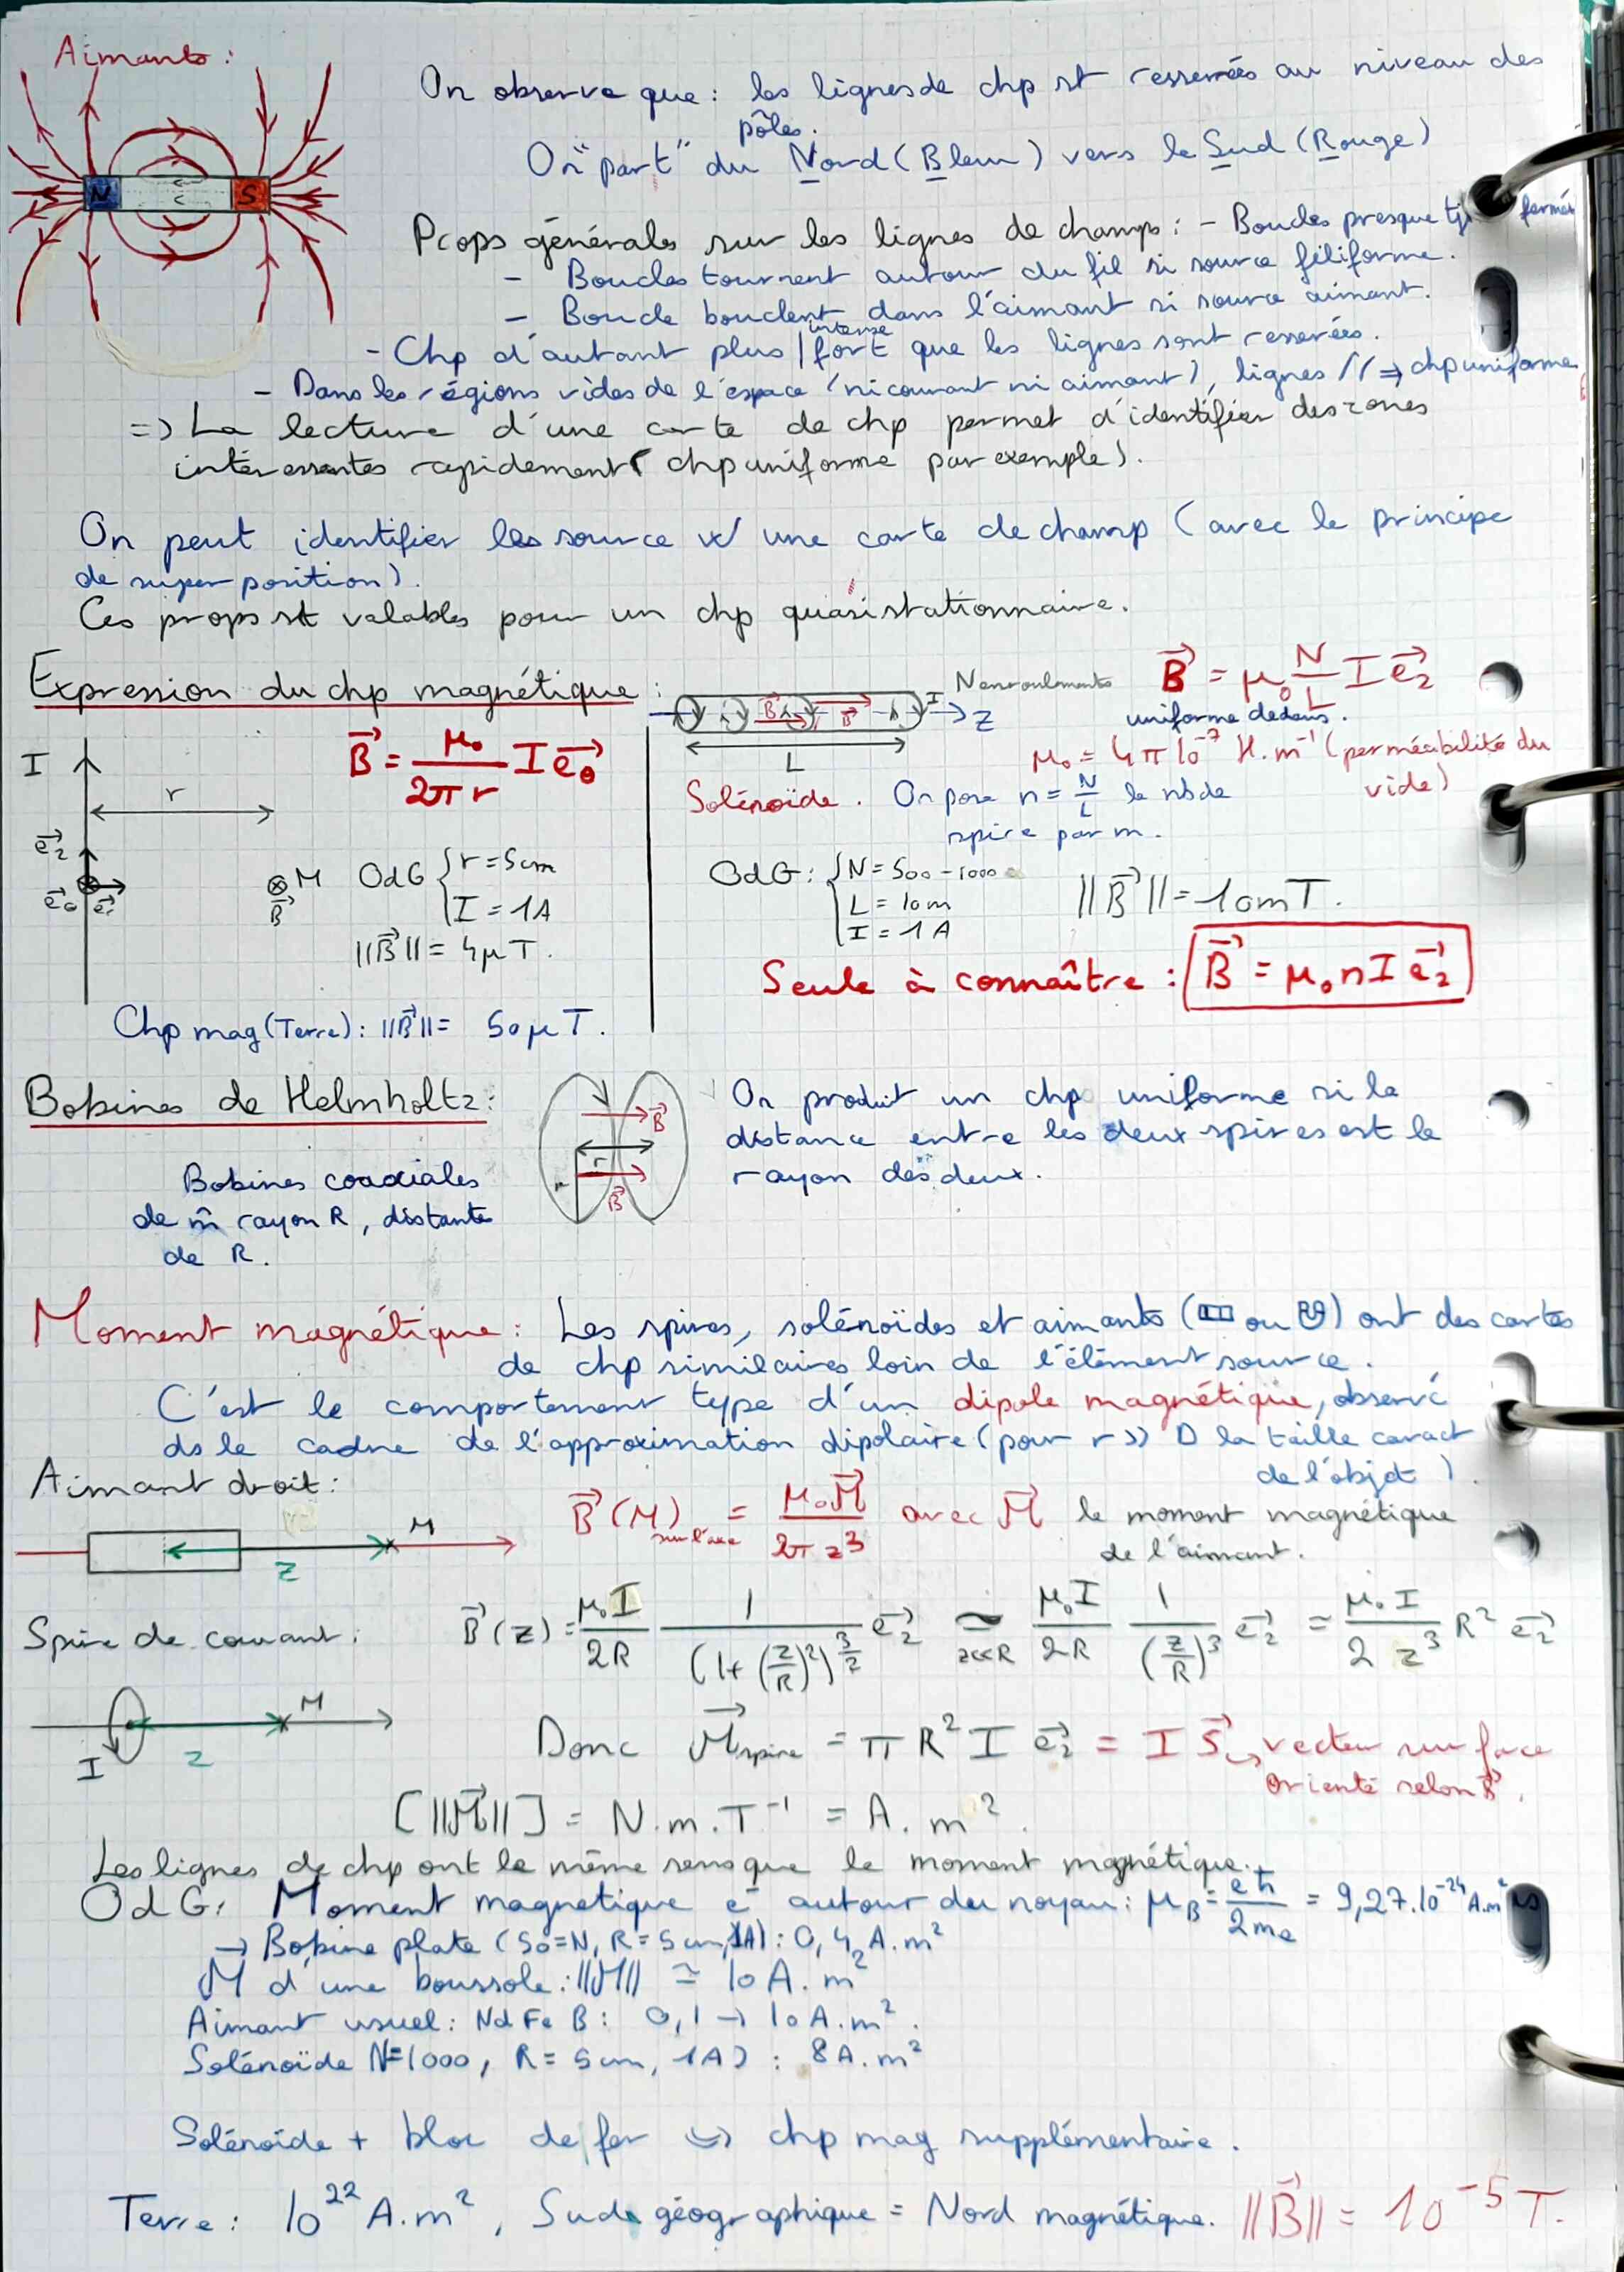 Aimants :
N S
On observe que : les lignes de chp st resserrées au niveau des
pôles.
On "part" du Nord (Bleu) vers le Sud (Rouge)
Props générales sur les lignes de champs : - Boucles presque tjs fermés
- Boucles tournent autour du fil si source filiforme.
- Boucle bouclent dans l'aimant si source aimant.
- Chp d'autant plus | fort intense que les lignes sont resserées.
- Dans les régions vides de l'espace (ni courant ni aimant), lignes // ⇒ chp uniforme
=> La lecture d'une carte de chp permet d'identifier des zones
intéressantes rapidement (chp uniforme par exemple).
On peut identifier les source w/ une carte de champ (avec le principe
de superposition).
Ces props st valables pour un chp quasistationnaire.
Expression du chp magnétique :
I
r
B⃗ = μ₀/(2πr) I e⃗θ
e⃗z
e⃗θ e⃗r
M
B⃗
OdG { r = 5cm
I = 1A
||B⃗|| = 4μT.
Chp mag (Terre) : ||B⃗|| = 50μT.
B⃗ B⃗ I z
L
N enroulements
B⃗ = μ₀ N/L I e⃗z
uniforme dedans.
μ₀ = 4π 10⁻⁷ H.m⁻¹ (perméabilité du
vide)
Solénoïde. On pose n = N/L le nb de
spire par m.
OdG : { N = 500 - 1000
L = 10m
I = 1A
||B⃗|| = 10mT.
Seule à connaître : B⃗ = μ₀ n I e⃗z
Bobines de Helmholtz :
Bobines coaxiales
de m̂ rayon R, distante
de R.
B⃗
r
r
B⃗
On produit un chp uniforme si la
distance entre les deux spires est le
rayon des deux.
Moment magnétique : Les spires, solénoïdes et aimants ( ou ) ont des cartes
de chp similaires loin de l'élément source.
C'est le comportement type d'un dipole magnétique, observé
ds le cadre de l'approximation dipolaire (pour r >> D la taille caract
de l'objet).
Aimant droit :
M
z
B⃗(M) sur l'axe = μ₀M⃗/(2π z³) avec M⃗ le moment magnétique
de l'aimant.
Spire de courant :
B⃗(z) = μ₀I/2R 1/(1+(z/R)²)^(3/2) e⃗z ≃ z<<R μ₀I/2R 1/(z/R)³ e⃗z = μ₀I/(2 z³) R² e⃗z
M
I z
Donc M⃗spire = πR² I e⃗z = I S⃗ ↳ vecteur surface
orienté selon B⃗.
[||M⃗||] = N.m.T⁻¹ = A.m².
Les lignes de chp ont le même sens que le moment magnétique.
OdG : Moment magnetique e⁻ autour du noyau : μB = eħ/2me = 9,27.10⁻²⁴ A.m²
→ Bobine plate (50=N, R=5cm, 1A) : 0,4 A.m²
M d'une boussole : ||M|| ≃ 10 A.m²
Aimant usuel : NdFeB : 0,1 → 10 A.m².
Solénoïde N=1000, R = 5cm, 1A) : 8A.m²
Solénoïde + bloc de fer ↪ chp mag supplémentaire.
Terre : 10²² A.m², Sud géographique = Nord magnétique. ||B⃗|| = 10⁻⁵ T.